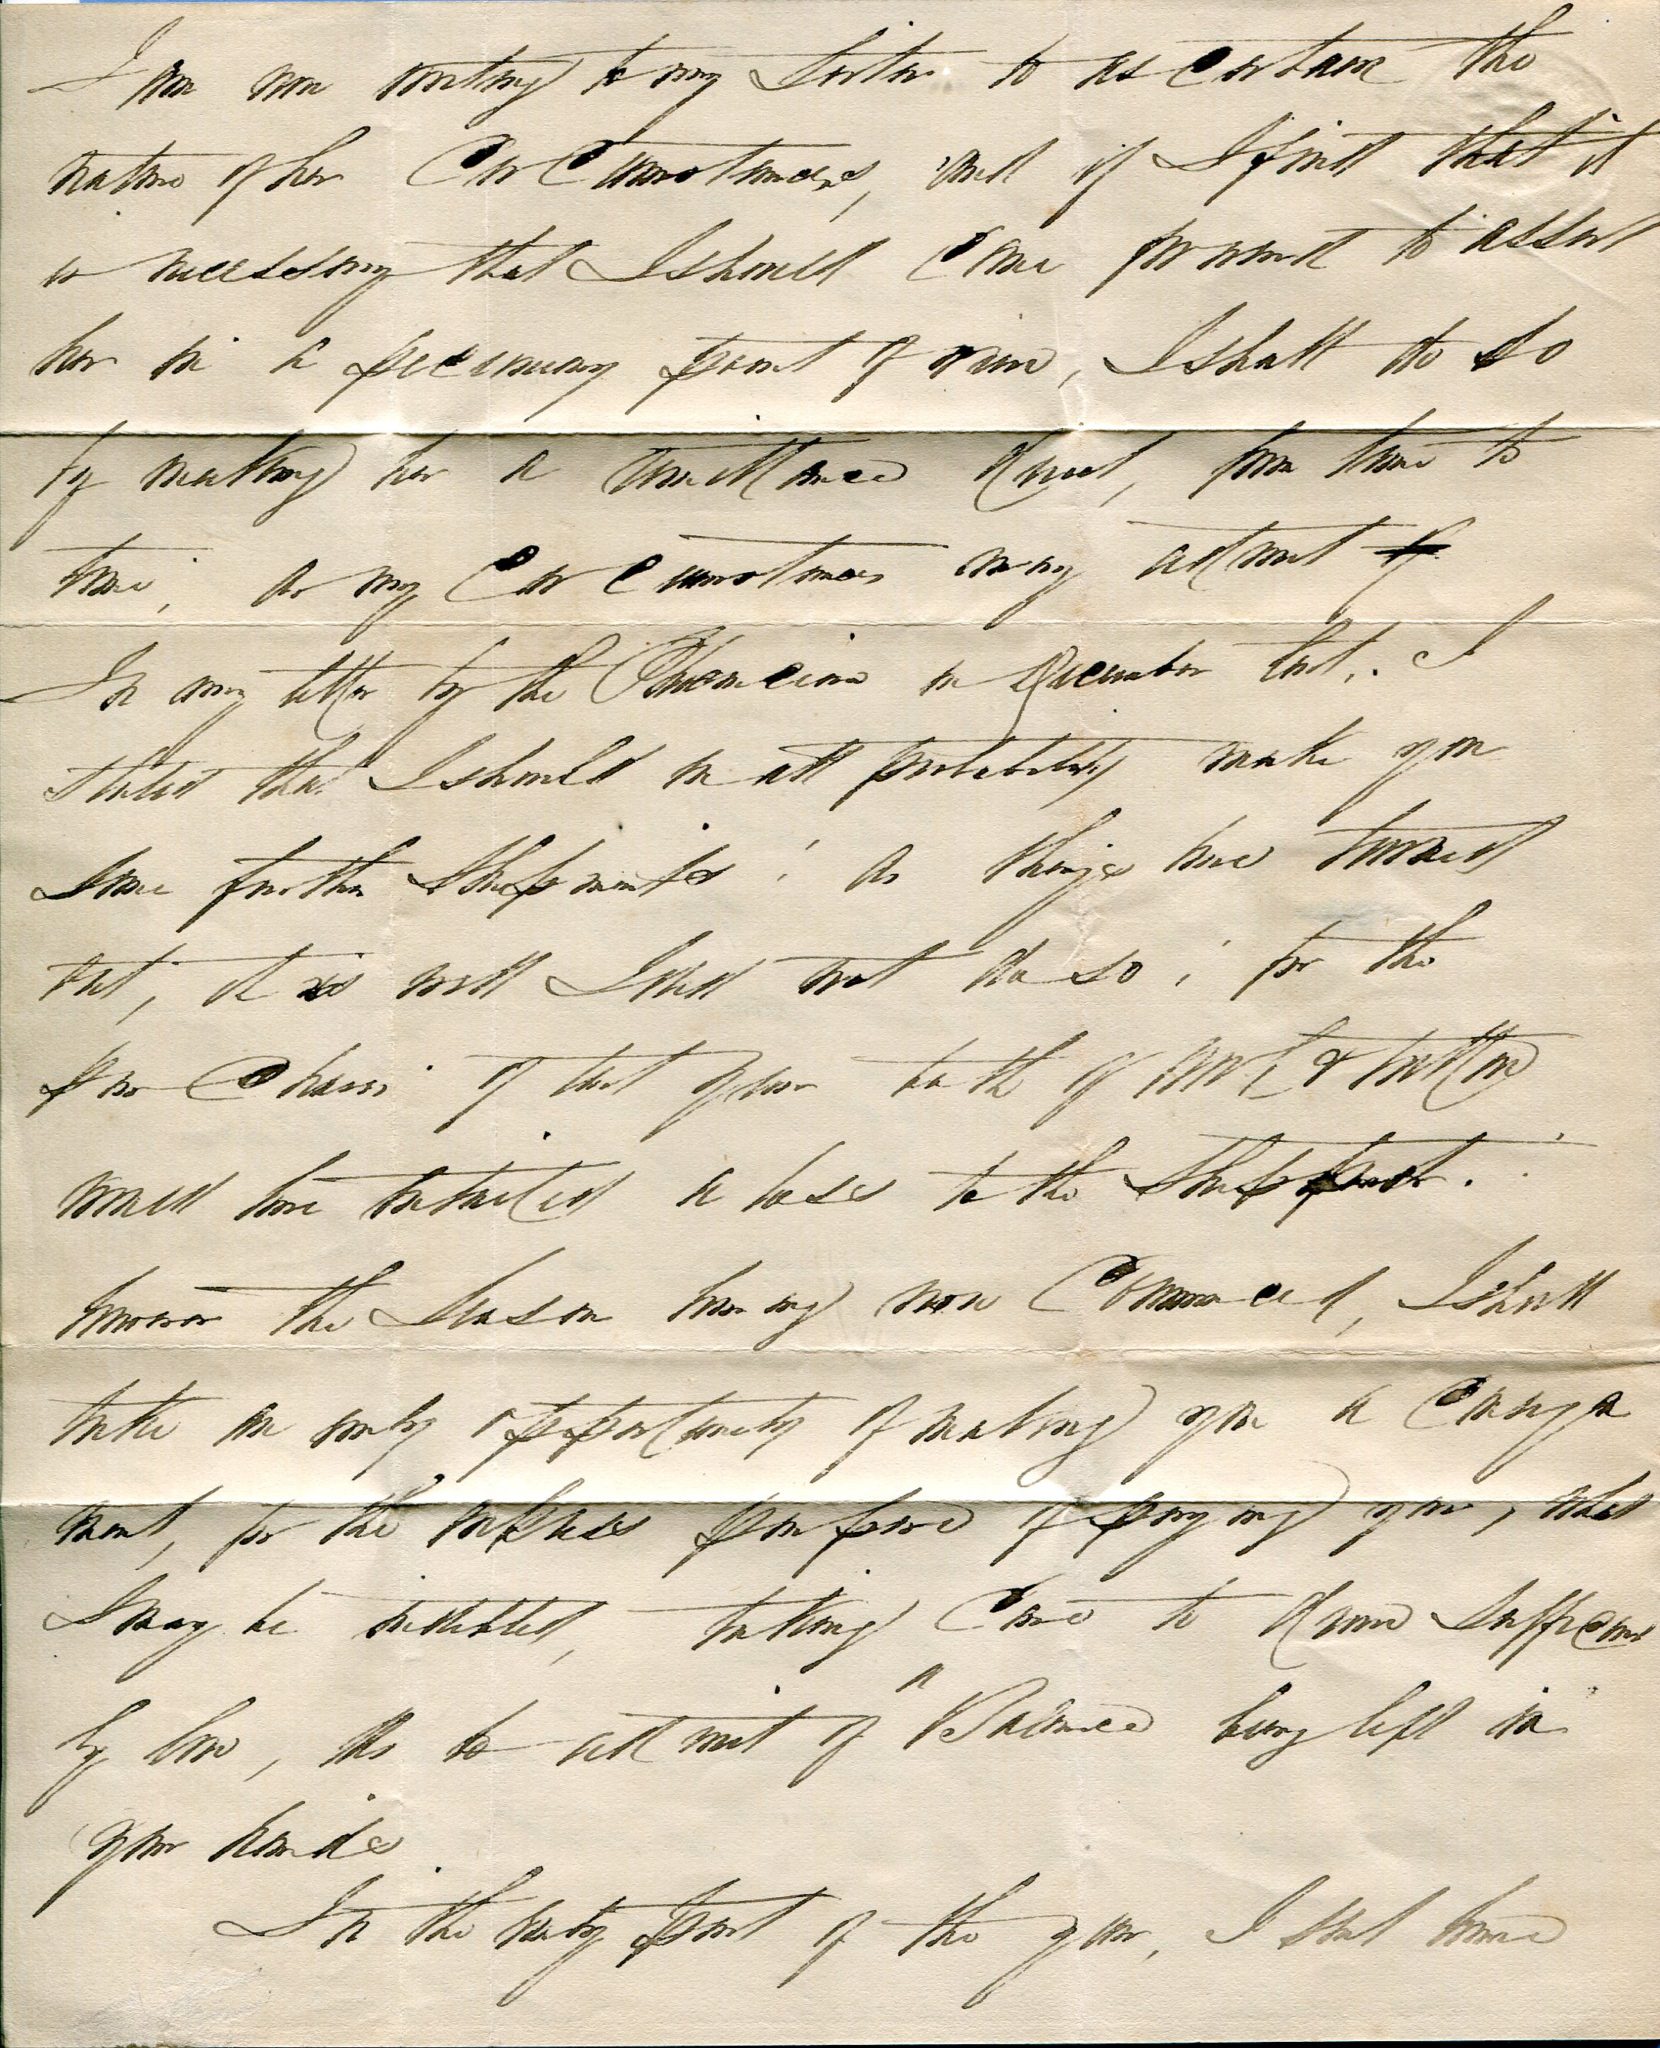 I am now writing to my Sister to ascertain the
nature of her Circumstances, and if I find that it
is necessary that I should Come forward to assist
her in a pecuniary point of view, I shall do so
by making her a remittance direct, from time to
time, as my Circumstances may admit of
In my letter by the in December last, I
stated that I should in all probability make you
some further Shipments; as things have turned
out, it is well I did not do so; for the
purchases of last year both of & 
would have entailed a loss to the Shipper.
however the Season having now Commenced, I shall
take an early opportunity of making you a Consign
ment, for the express purpose of paying you, what
I may be indebted, taking Care to draw sufficient
ly low, as to admit of a Balance being left in
your hands
In the early part of the year, I sent home